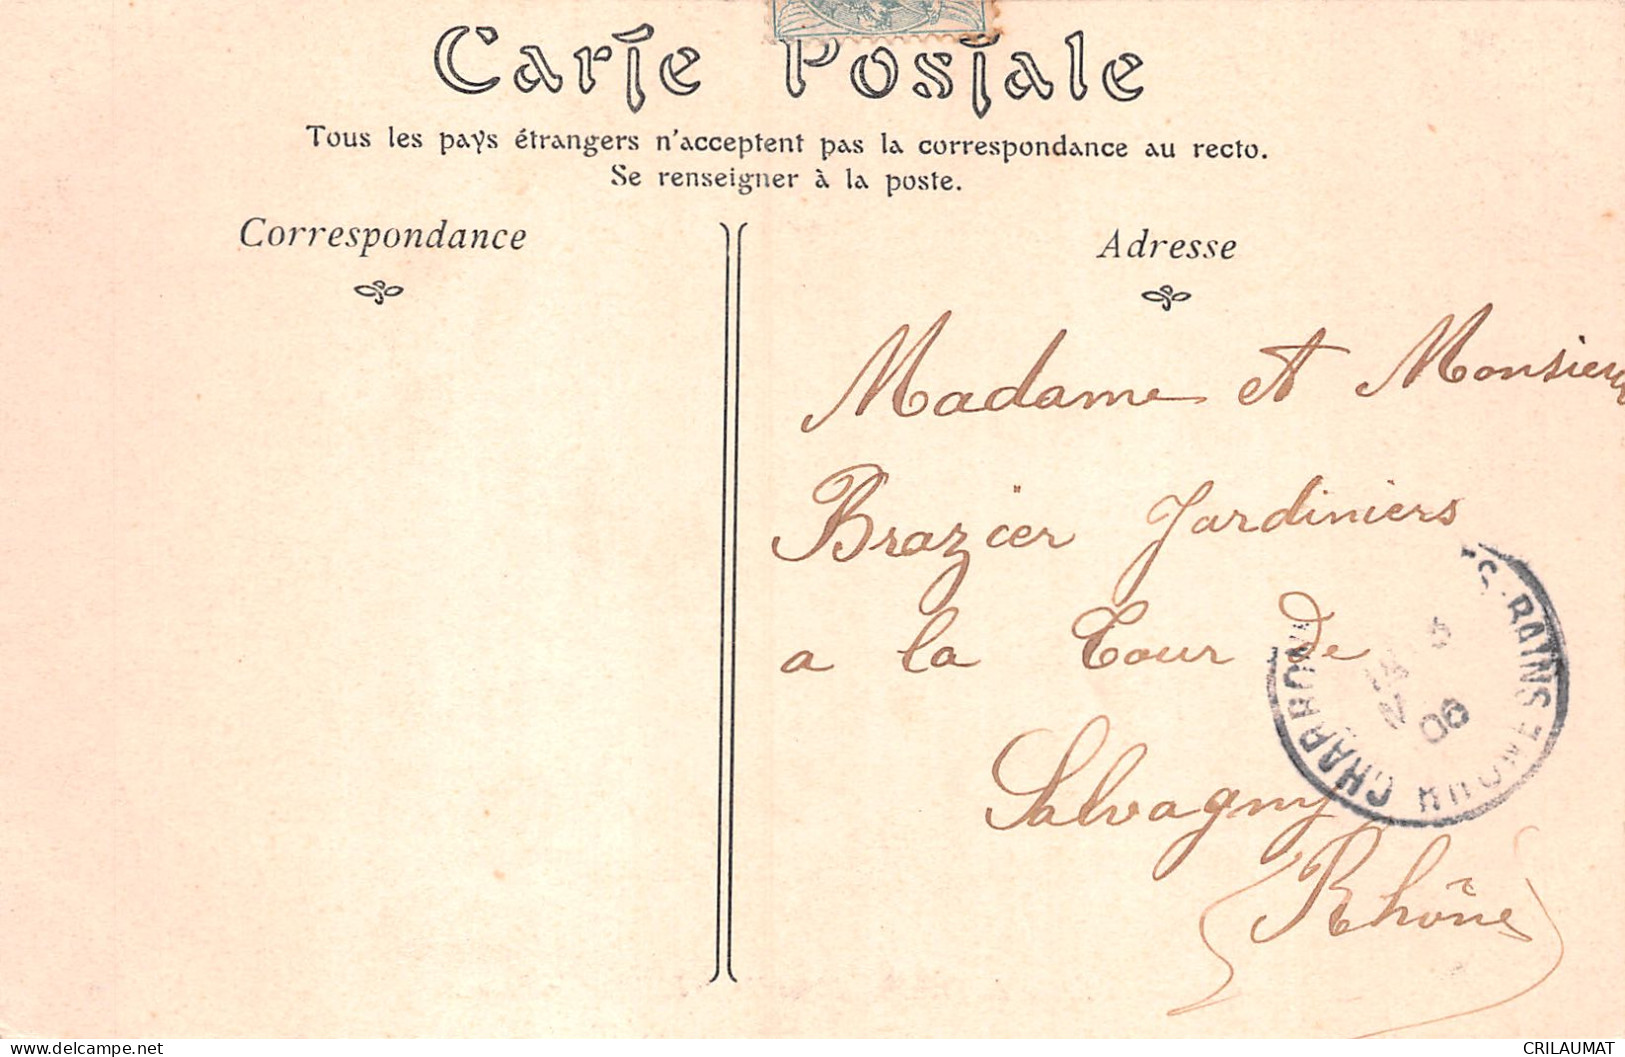 Carte Postale
Tous les pays étrangers n'acceptent pas la correspondance au recto.
Se renseigner à la poste.
Correspondance
Adresse
Madame et Monsieur
Brazier Jardiniers
a la Tour de
Salvagny
Rhône
CHARBONN S-BAINS RHONE
06
delcampe.net
CRILAUMAT